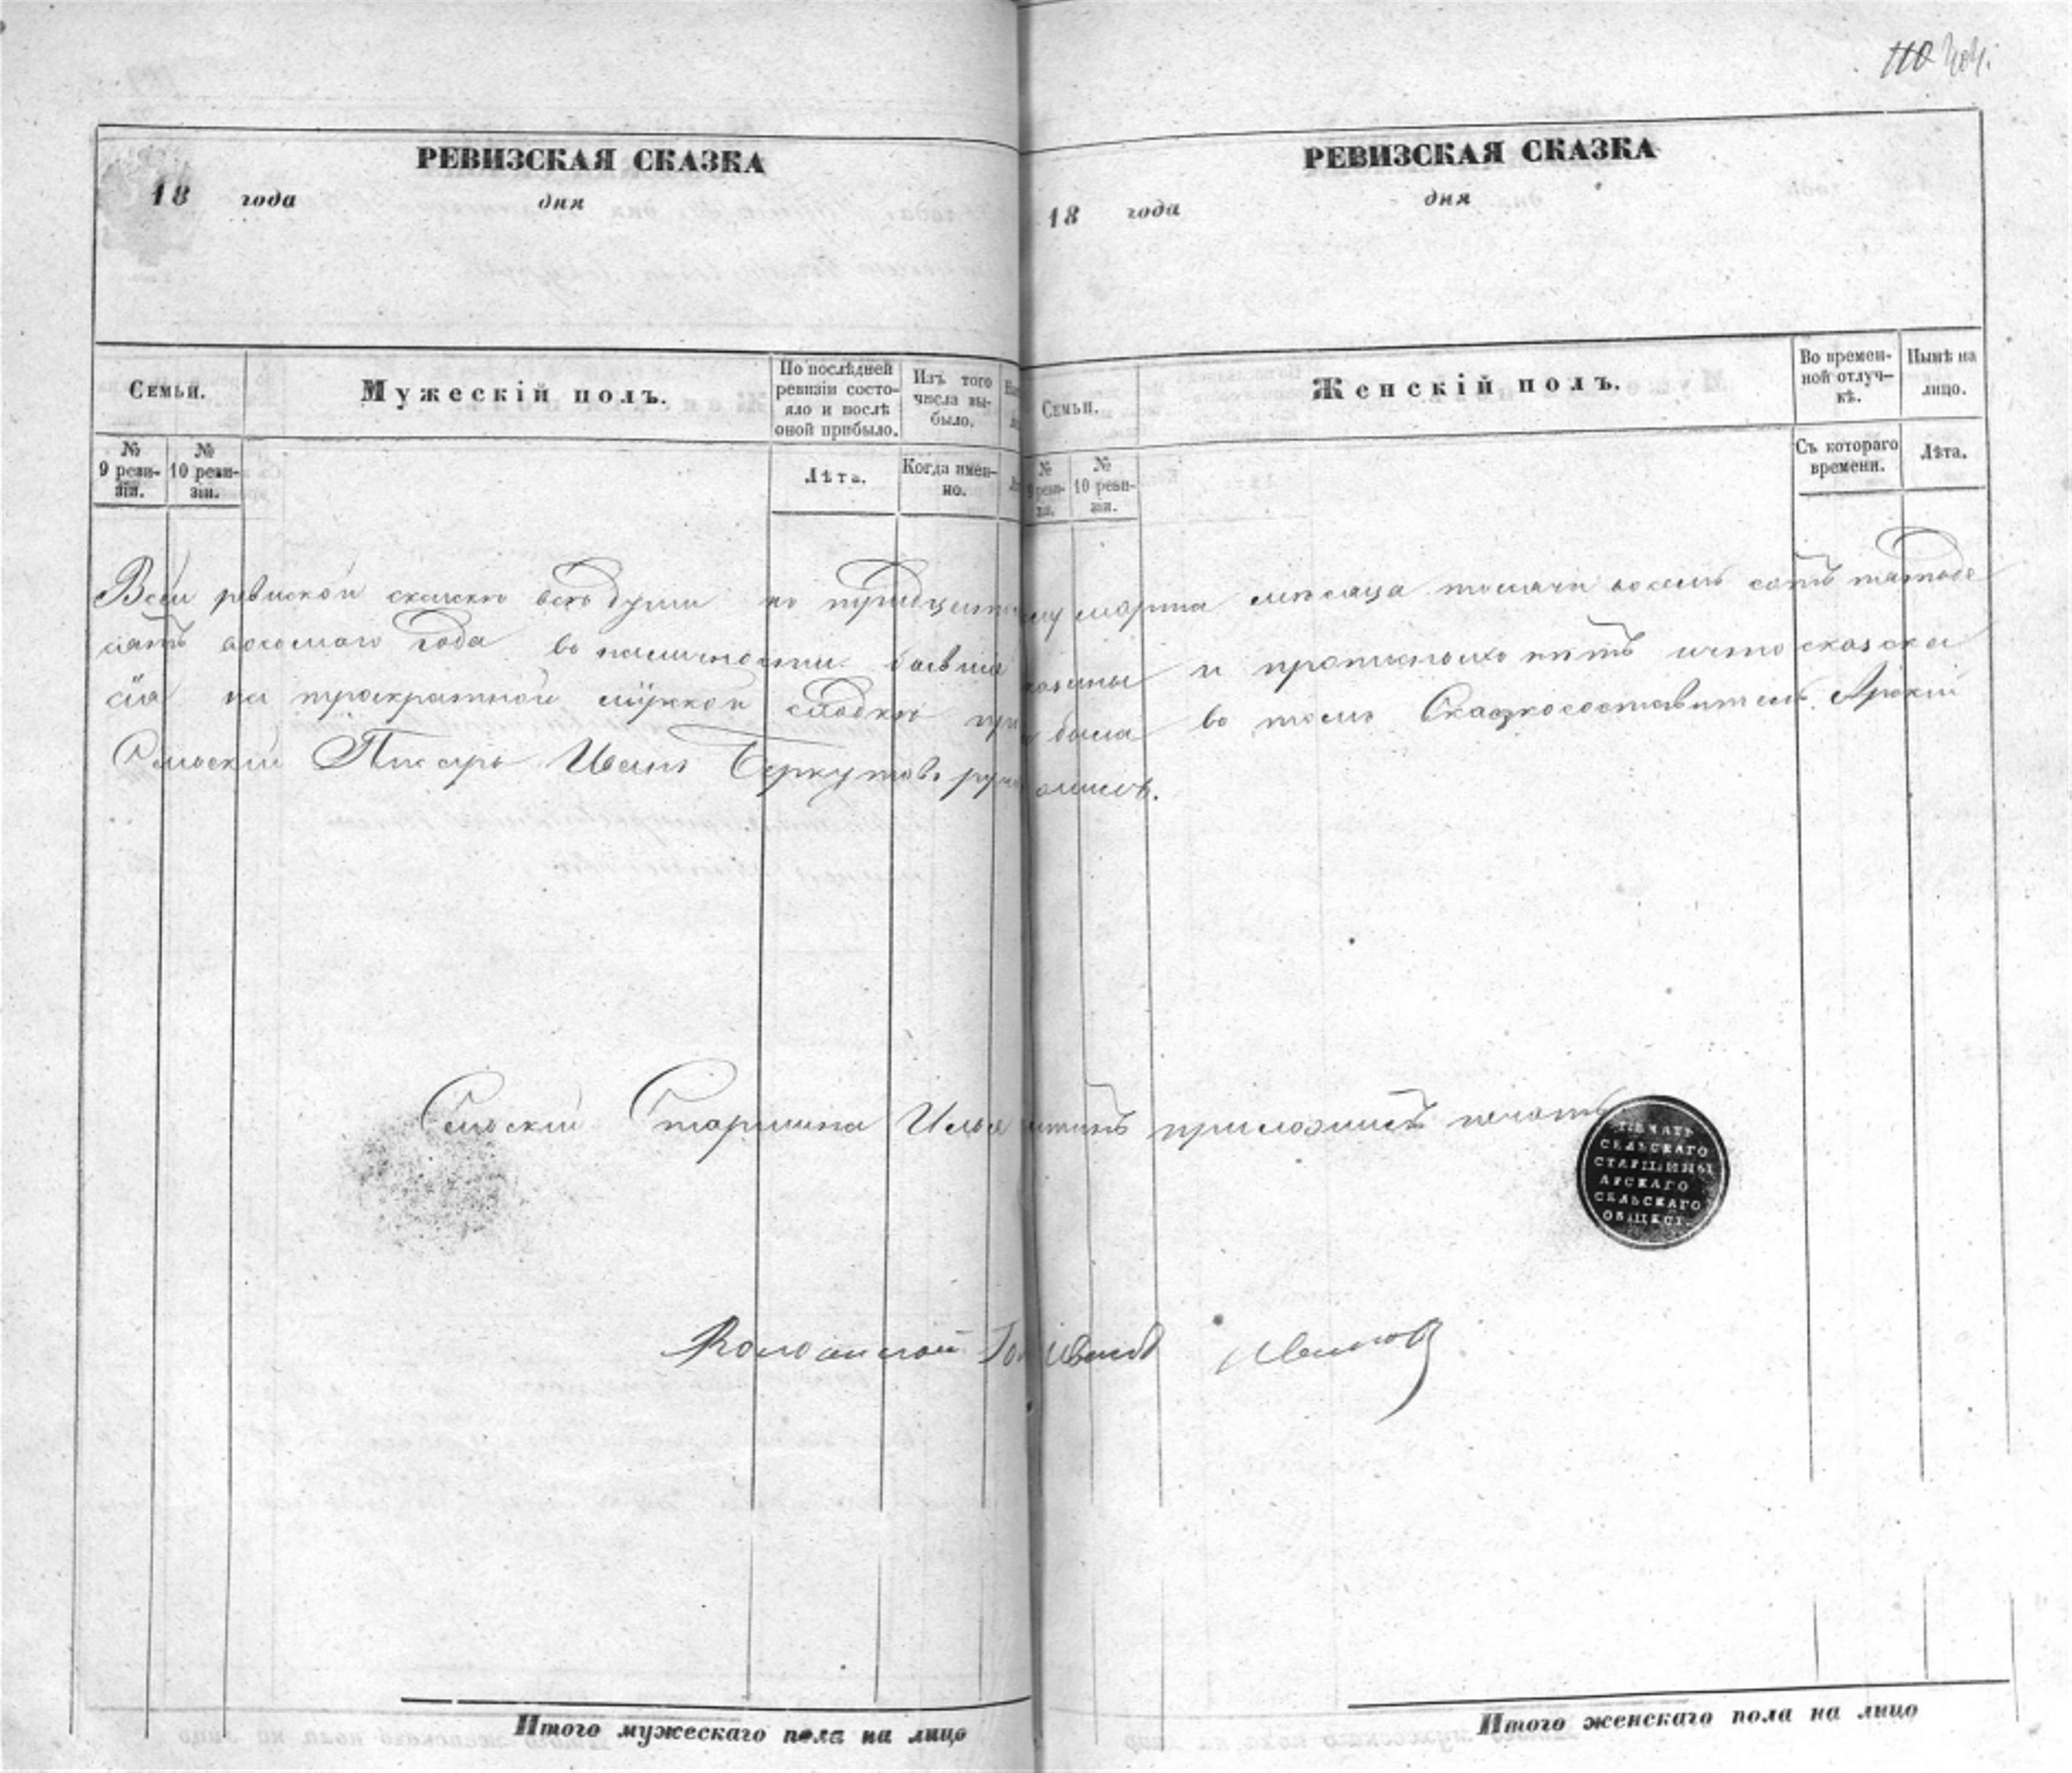 110 404.
РЕВИЗСКАЯ СКАЗКА
18 года дня
Семьи.
Мужескій полъ.
По послѣдней ревизіи состо-
яло и послѣ
оной прибыло.
Изъ того
числа вы-
было.
№
9 реви-
зіи.
№
10 реви-
зіи.
Лѣта.
Когда имен-
но.
РЕВИЗСКАЯ СКАЗКА
18 года дня
Семьи.
Женскій полъ.
Во времен-
ной отлуч-
кѣ.
Нынѣ на
лицо.
№
9 реви-
зіи.
№
10 реви-
зіи.
Съ котораго
времени.
Лѣта.
Всей ревиской скаски всѣ души по тридцатому марта месяца тысяча восемь сотъ пятьде
сятъ восмого года во наличности бывши показаны и прописныхъ нетъ и что сказка
сія на троекратной мірской сходки при была во томъ Сказкосоставитель Арскій
Сельскій Писарь Иванъ Беркутовъ
Сельскій Старшина Илья приложилъ печать
ПЕЧАТЬ
СЕЛЬСКАГО
СТАРШИНЫ
АРСКАГО
СЕЛЬСКАГО
ОБЩЕСТ.
Волостной Голова Ивановъ
Итого мужескаго пола на лицо
Итого женскаго пола на лицо